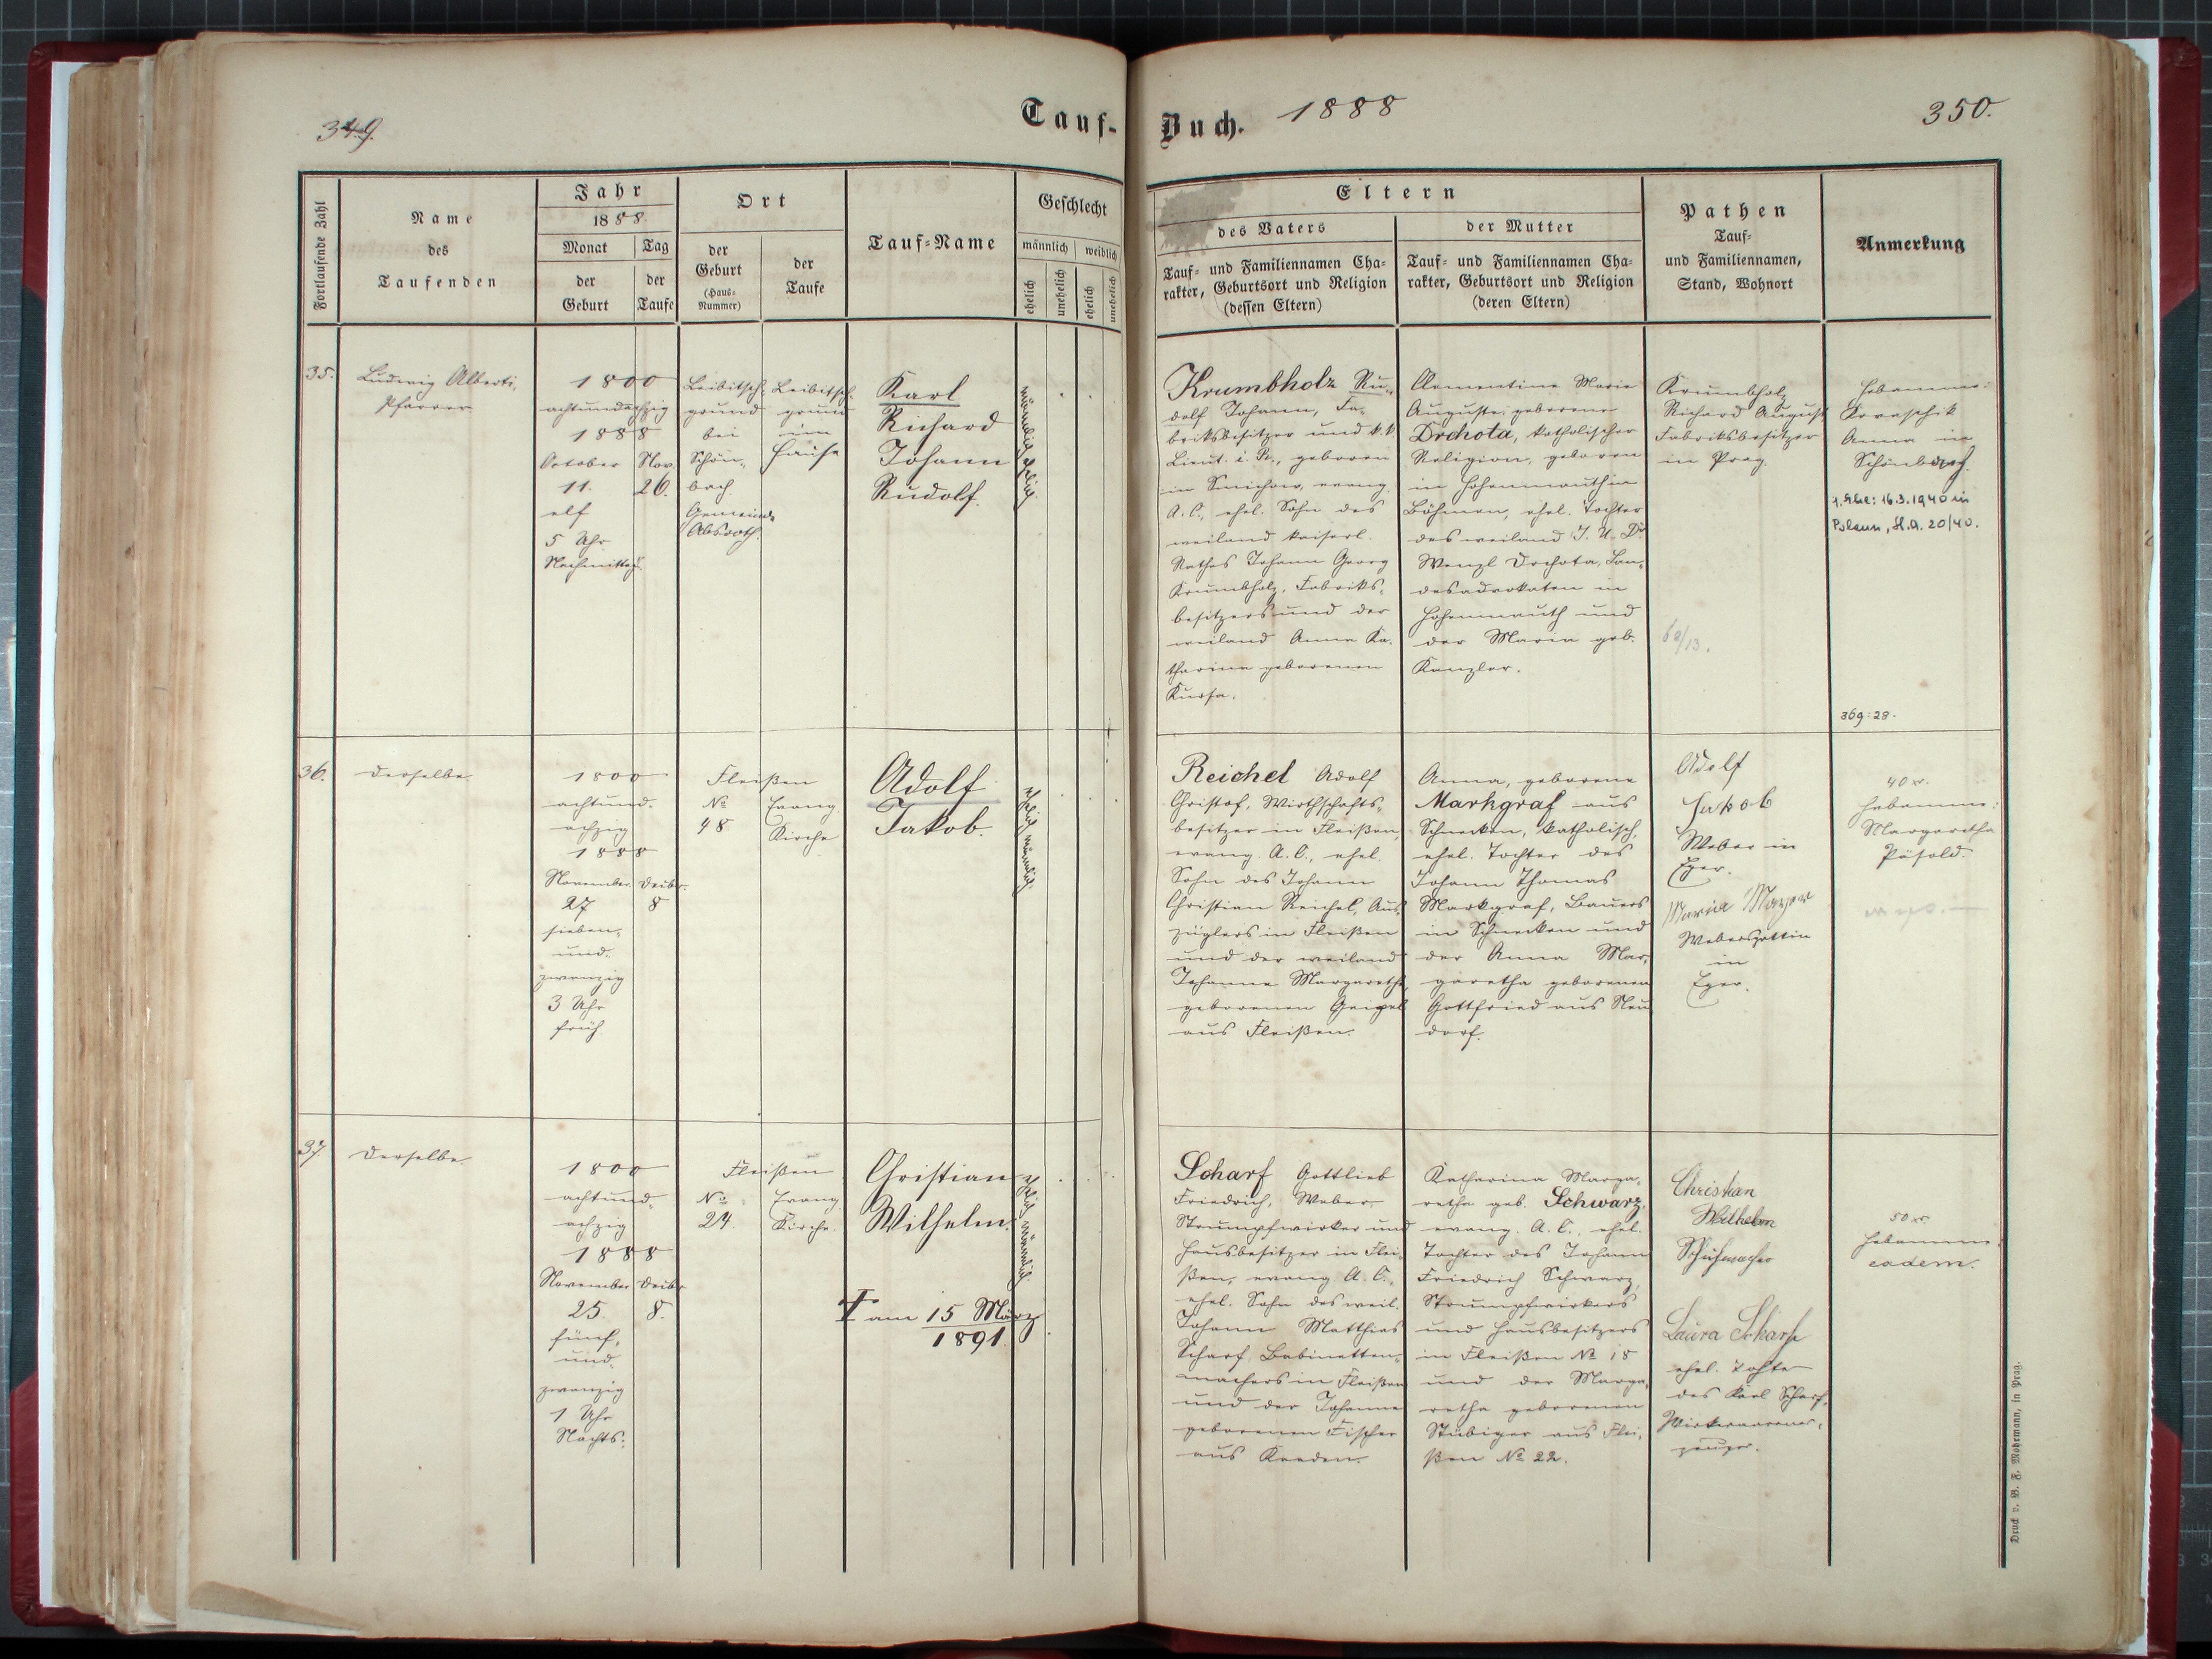 349.
Tauf-
Buch.
1888
350.
Fortlaufende Zahl
Name
des
Taufenden
Jahr
1888.
Monat
Tag
der
Geburt
der
Taufe
Ort
der
Geburt
(Haus-
Nummer)
der
Taufe
Tauf-Name
Geschlecht
männlich
weiblich
ehelich
unehelich
ehelich
unehelich
Eltern
des Vaters
Tauf- und Familiennamen Cha-
rakter, Geburtsort und Religion
(dessen Eltern)
der Mutter
Tauf- und Familiennamen Cha-
rakter, Geburtsort und Religion
(deren Eltern)
Pathen
Tauf-
und Familiennamen,
Stand, Wohnort
Anmerkung
35.
Ludwig Alberti,
Pfarrer
1800
achtundachzig
1888
October
11.
elf
5 Uhr
Nachmittag
Nov.
26.
Leibitsch-
grund
bei
Schön-
bach
Gemeinde
Absroth.
Leibitsch-
grund
im
Hause
Karl
Richard
Johann
Rudolf.
männlich ehelich
Krumbholz Ru-
dolf Johann, Fa-
briksbesitzer und k.k.
Lieut. i. R., geboren
in Smichow, evang.
A. C., ehel. Sohn des
weiland kaiserl.
Rathes Johann Georg
Krumbholz, Fabriks-
besitzers und der
weiland Anna Ka-
tharina geborenen
Kursa.
Clementine Marie
Auguste, geborene
Drchota, katholischer
Religion, geboren
in Hohenmauth in
Böhmen, ehel. Tochter
des weiland J. U. Dr
Wenzl Drchota, Lan-
desadvokaten in
Hohenmauth und
der Maria geb.
Kanzler.
Krumbholz
Richard August
Fabriksbesitzer
in Prag.
68/13.
Hebamme:
Anna in
Schönbach.
1. Ehe: 16.3.1940 in
Polaun, H.A. 20/40.
369:28.
36.
Derselbe
1800
achtund-
achzig
1888
November
27
sieben-
und-
zwanzig
3 Uhr
früh
Decbr.
8
Fleißen
No
48
Evang
Kirche
Adolf
Jakob.
ehelich männlich
Reichel Adolf
Christof, Wirthschafts-
besitzer in Fleißen,
evang. A. C., ehel.
Sohn des Johann
Christian Reichel, Aus-
züglers in Fleißen
und der weiland
Johanna Margaretha
geborenen Geipel
aus Fleißen.
Anna, geborene
Markgraf aus
Schnecken, katholisch,
ehel. Tochter des
Johann Thomas
Markgraf, Bauers
in Schnecken und
der Anna Mar-
garetha geborenen
Gottfried aus Neu
dorf.
Adolf
Jakob
Weber in
Eger.
Maria
Webersgattin
in
Eger.
40 xr.
Hebamme:
Margaretha
Päsold.
37.
Derselbe
1800
achtund-
achzig
1888
November
25.
fünf-
und-
zwanzig
1 Uhr
Nachts.
Decbr
8.
Fleißen
No
24.
Evang.
Kirche.
Christian
Wilhelm.
ehelich männlich
† am 15 März
1891.
Scharf Gottlieb
Friedrich, Weber,
Strumpfwirker und
Hausbesitzer in Flei-
ßen, evang A. C.,
ehel. Sohn des weil.
Johann Matthias
Scharf, Babinetten-
machers in Fleißen
und der Johanna
geborenen Fischer
aus Kneden.
Katharina Marga-
retha geb. Schwarz,
evang. A. C., ehel.
Tochter des Johann
Friedrich Schwarz,
Strumpfwirkers
und Hausbesitzers
in Fleißen No 18
und der Marga-
retha geborenen
Stübiger aus Flei-
ßen No 22.
Christian
Wilhelm
Schuhmacher
Laura Scharf
ehel. Tochter
des Karl Scharf,
Wirkwaarener-
zeuger.
50 xr.
Hebamme
eadem.
Druck v. B. F. Mohrmann, in Prag.